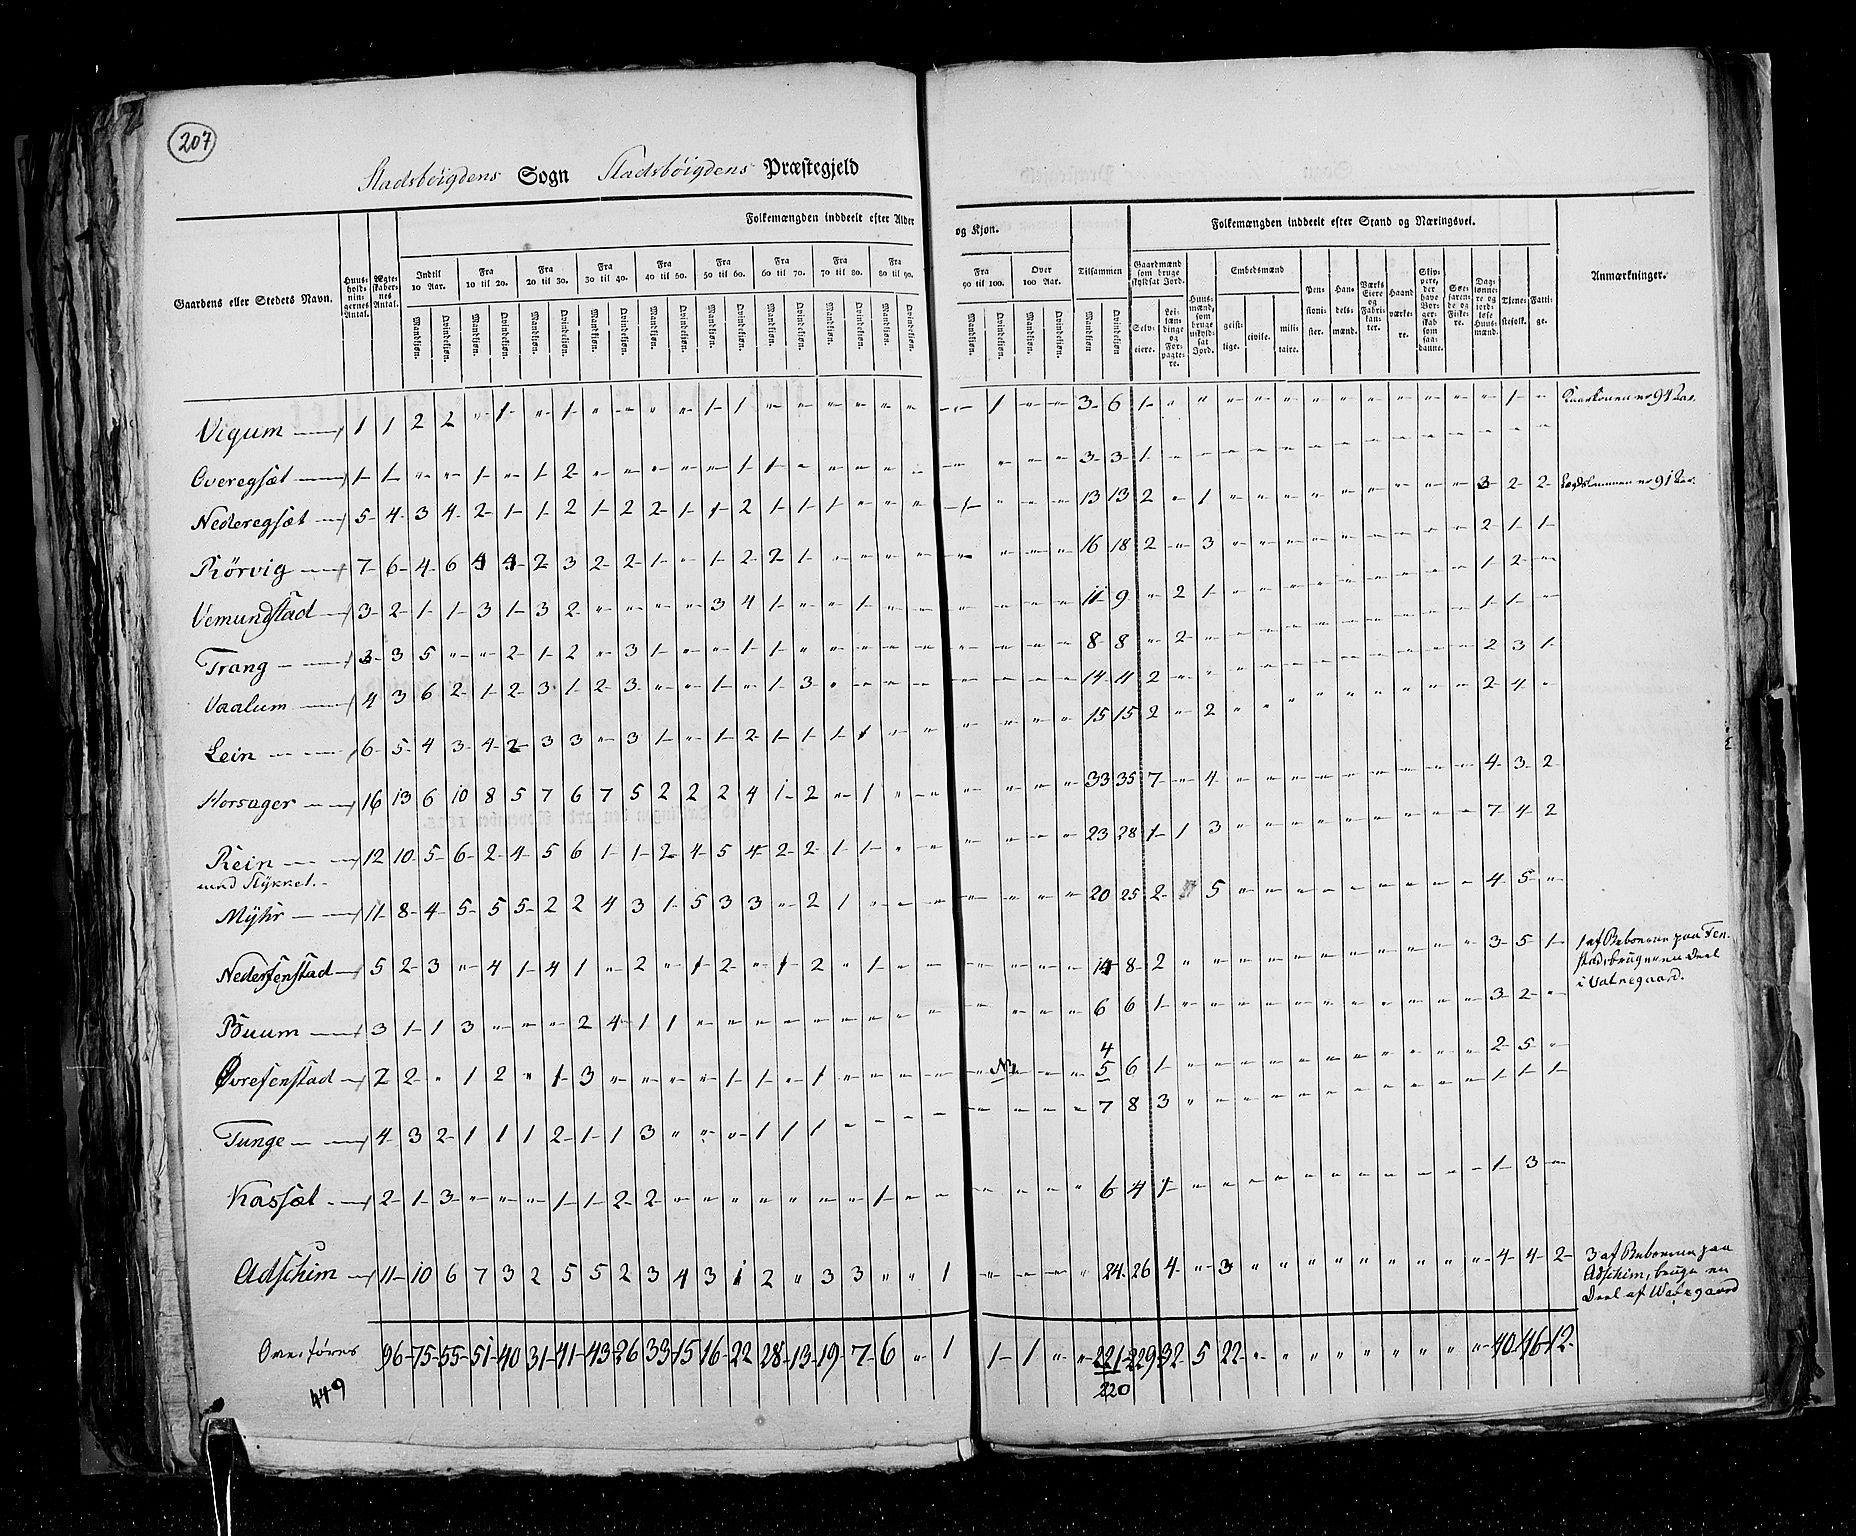 207
Stadsbøigdens Sogn Stadsbøigdens Præstegjeld
Folkemængden inddeelt efter Alder og Kjøn.
Folkemængden inddeelt efter Stand og Næringsvei.
Gaardens eller Stedets Navn.
Huusholdningernes Antal.
Ægteskabernes Antal.
Indtil 10 Aar.
Fra 10 til 20.
Fra 20 til 30.
Fra 30 til 40.
Fra 40 til 50.
Fra 50 til 60.
Fra 60 til 70.
Fra 70 til 80.
Fra 80 til 90.
Fra 90 til 100.
Over 100 Aar.
Tilsammen
Mandkjøn. Qvindekjøn.
Gaardmænd som bruge skyldsat Jord.
Selveiere.
Leilændinge og Forpagtere.
Huusmænd, som bruge uskyldsat Jord.
Embedsmænd
geistlige. civile. militaire.
Pensionister.
Handelsmænd.
Værks Eiere og Fabrikanter.
Haandværkere.
Skippere, der have Borgerskab som saadanne.
Søefarende og Fiskere.
Daglønnere og jordløse Huusmænd.
Tjenestefolk.
Fattige.
Anmærkninger.
Vigum 1 1 2 2 " 1 " 1 " " " " 1 1 " " " " " " " 1 " " 3 6 1 " " " " " " " " " " " " 1 "
Overegsæt 1 1 " " 1 " 1 2 " " " " " 1 1 " " " " " " " " " 3 3 1 " " " " " " " " " " " " " "
Nederegsæt 5 4 3 4 2 1 1 2 1 2 2 1 1 2 1 1 1 " " " 1 " " " 13 13 2 " 1 " " " " " " " " " 3 2 2
Rørvig 7 6 4 6 4 4 2 3 2 2 1 " 1 2 2 1 " " " " " " " " 16 18 2 " 3 " " " " " " " " " 2 1 1
Vemundstad 3 2 1 1 3 1 3 2 " " " " 3 4 1 " " 1 " " " " " " 11 9 " 2 1 " " " " " " " " " 1 2 "
Trang 3 3 5 " " 2 1 2 " 3 1 " " 1 1 " " " " " " " " " 8 8 " 2 " " " " " " " " " " 1 1 "
Vaalum 4 3 6 2 1 2 3 1 2 3 " " 1 " 1 3 " " " " " " " " 14 11 2 " " " " " " " " " " " 2 3 1
Lein 6 5 4 3 4 2 3 3 " 3 1 " 1 2 1 1 1 1 " " " " " " 15 15 2 " 2 " " " " " " " " " 2 4 "
Horsager 16 13 6 10 8 5 7 6 7 5 2 2 2 4 1 2 " 1 " " " " " " 33 35 7 " 4 " " " " " " " " " 4 3 2
Rein 12 10 5 6 2 4 5 6 1 1 2 4 5 4 2 2 1 1 " " " " " " 23 28 1 1 3 " " " " " " " " " 7 4 2
med Stykket.
Myhr 11 8 4 5 5 5 2 2 4 3 1 5 3 3 " 2 1 " " " " " " " 20 25 2 5 " " " " " " " " " 4 5 "
Nederfenstad 5 2 3 " 4 1 4 1 " 2 " 1 2 " 1 2 " 1 " " " " " " 14 8 2 " " " " " " " " " " " 3 5 1
Buum 3 1 1 3 " " " 2 4 1 1 " " " " " " " " " " " " " 6 6 1 " " " " " " " " " " " 3 2 "
4
Øvrefenstad 2 2 " 1 2 " 1 3 " " " " 1 1 " 1 " " " " " " " 5 6 1 " " " " " " " " " " " 2 5 "
Tunge 4 3 2 1 1 1 2 1 1 3 " " " 1 1 1 " " " " " " " " 7 8 3 " " " " " " " " " " " 1 1 1
Kassæt 2 1 3 " " " 1 1 2 2 " " " " " " " 1 " " " " " " 6 4 1 " " " " " " " " " " " 1 3 "
Adshim 11 10 6 7 3 2 5 5 2 3 4 3 1 2 " 3 3 " " 1 " " " " 24 26 4 " 3 " " " " " " " " " 4 4 2
Overføres 96 75 55 51 40 31 41 43 26 33 15 16 22 28 13 19 7 6 " 1 1 1 " " 221 229 32 5 22 " " " " " " " " " 40 46 12
449
220
er 94 Aar.
er 91 Aar.
1 af Beboerne paa Fenstad, bruger en Deel i Vatnegaard.
3 af Beboerne paa Adshim, bruge en Deel af